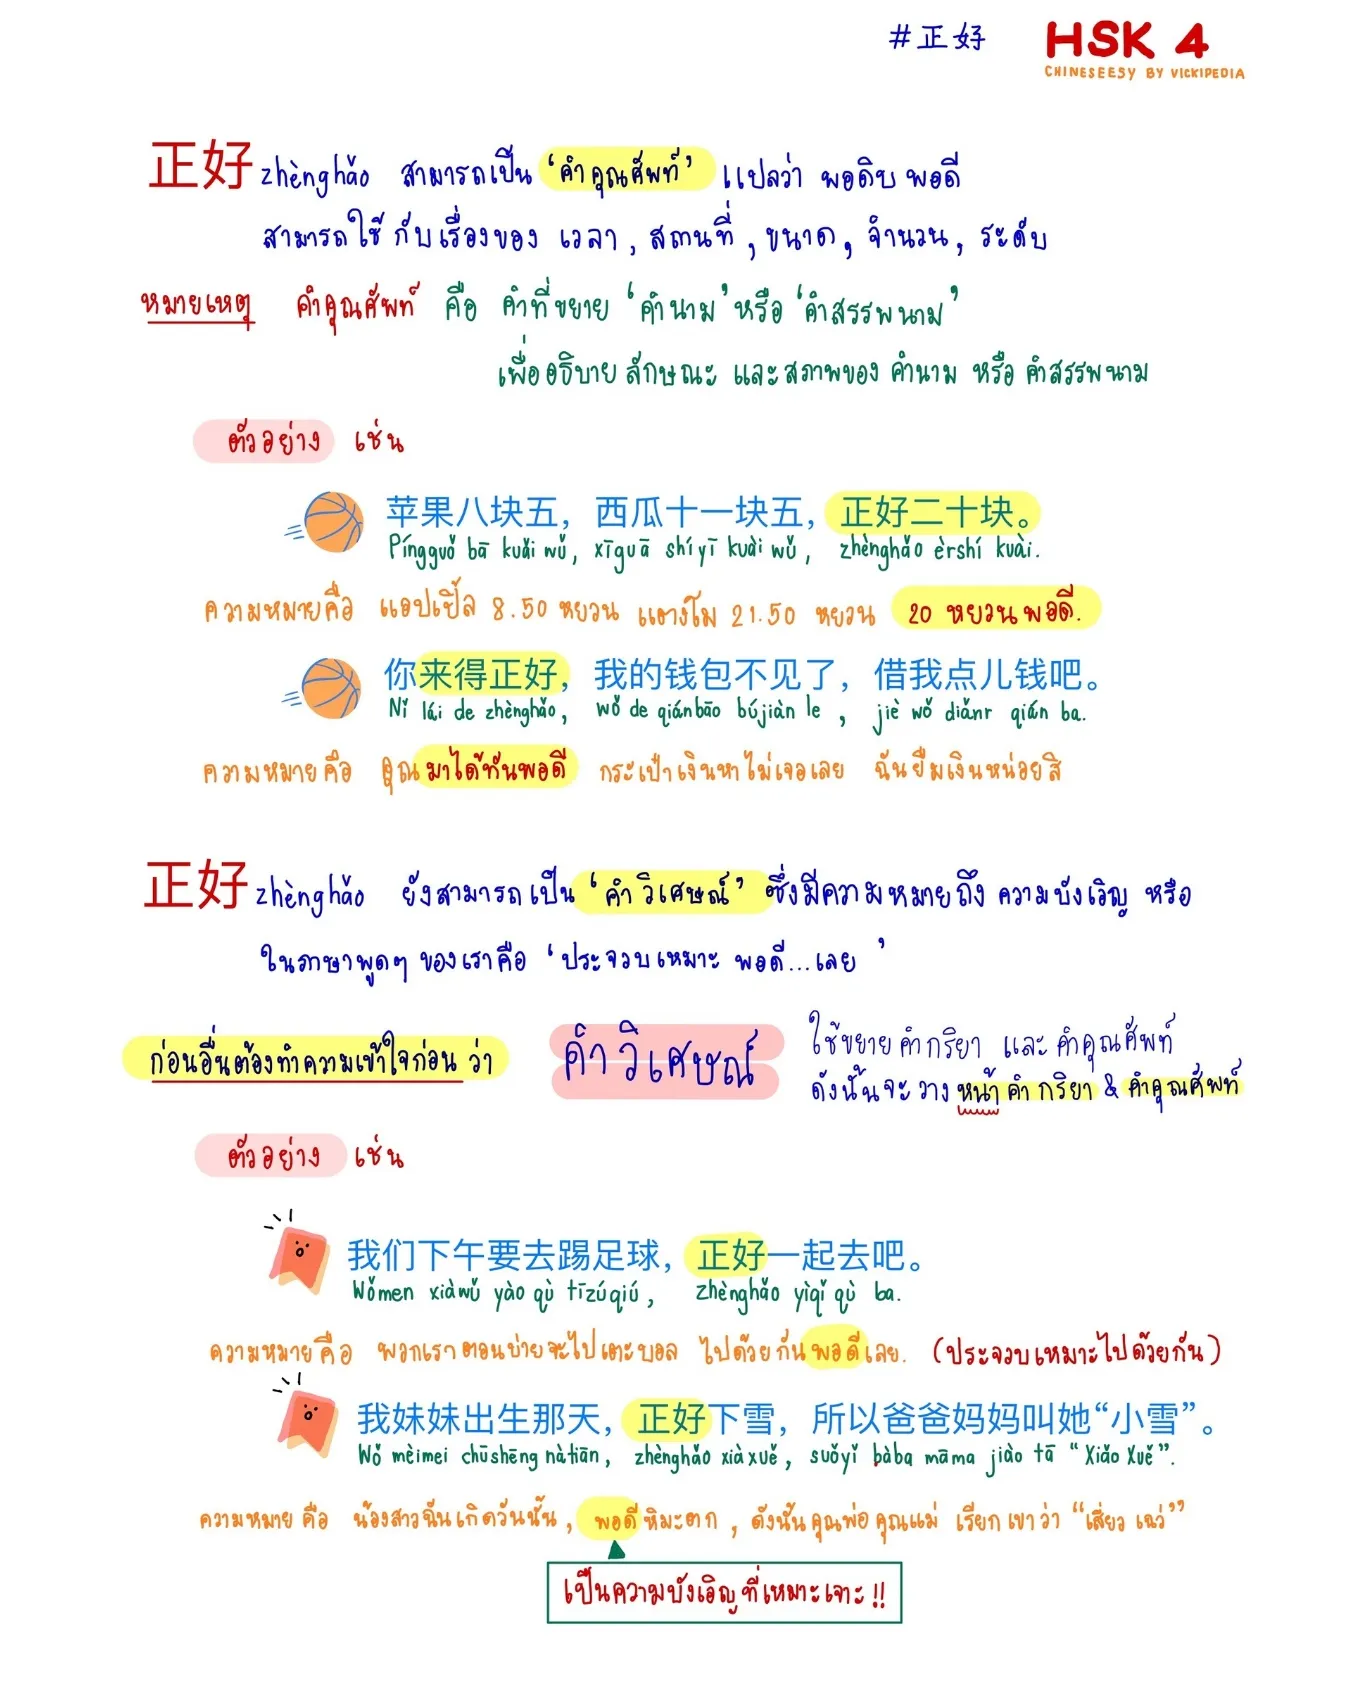 #正好 HSK 4
CHINESEESY BY VICKIPEDIA
正好 zhènghǎo สามารถเป็น ‘คำคุณศัพท์’ แปลว่า พอดิบพอดี
สามารถใช้ กับเรื่องของ เวลา, สถานที่, ขนาด, จำนวน, ระดับ
หมายเหตุ คำคุณศัพท์ คือ คำที่ขยาย ‘คำนาม’ หรือ ‘คำสรรพนาม’
เพื่ออธิบาย ลักษณะ และสภาพของ คำนาม หรือ คำสรรพนาม
ตัวอย่าง เช่น
苹果八块五，西瓜十一块五，正好二十块。
Píngguǒ bā kuài wǔ, xīguā shíyī kuài wǔ, zhènghǎo èrshí kuài.
ความหมายคือ แอปเปิ้ล 8.50 หยวน แตงโม 21.50 หยวน 20 หยวนพอดี.
你来得正好，我的钱包不见了，借我点儿钱吧。
Nǐ lái de zhènghǎo, wǒ de qiánbāo bújiàn le, jiè wǒ diǎnr qián ba.
ความหมายคือ คุณมาได้ทันพอดี กระเป๋าเงินหาไม่เจอเลย ฉันยืมเงินหน่อยสิ
正好 zhènghǎo ยังสามารถเป็น ‘คำวิเศษณ์’ ซึ่งมีความหมายถึง ความบังเอิญ หรือ
ในภาษาพูดๆ ของเราคือ ‘ประจวบเหมาะ พอดี...เลย’
ก่อนอื่นต้องทำความเข้าใจก่อน ว่า คำวิเศษณ์ ใช้ขยาย คำกริยา และ คำคุณศัพท์
ดังนั้นจะวาง หน้าคำกริยา & คำคุณศัพท์
ตัวอย่าง เช่น
我们下午要去踢足球，正好一起去吧。
Wǒmen xiàwǔ yào qù tīzúqiú, zhènghǎo yìqǐ qù ba.
ความหมายคือ พวกเราตอนบ่ายจะไปเตะบอล ไปด้วยกันพอดีเลย. (ประจวบเหมาะไปด้วยกัน)
我妹妹出生那天，正好下雪，所以爸爸妈妈叫她“小雪”。
Wǒ mèimei chūshēng nàtiān, zhènghǎo xiàxuě, suǒyǐ bàba māma jiào tā “Xiǎo Xuě”.
ความหมาย คือ น้องสาวฉันเกิดวันนั้น, พอดีหิมะตก, ดังนั้นคุณพ่อคุณแม่ เรียกเขาว่า “เสี่ยวเฉว่”
เป็นความบังเอิญที่เหมาะเจาะ!!